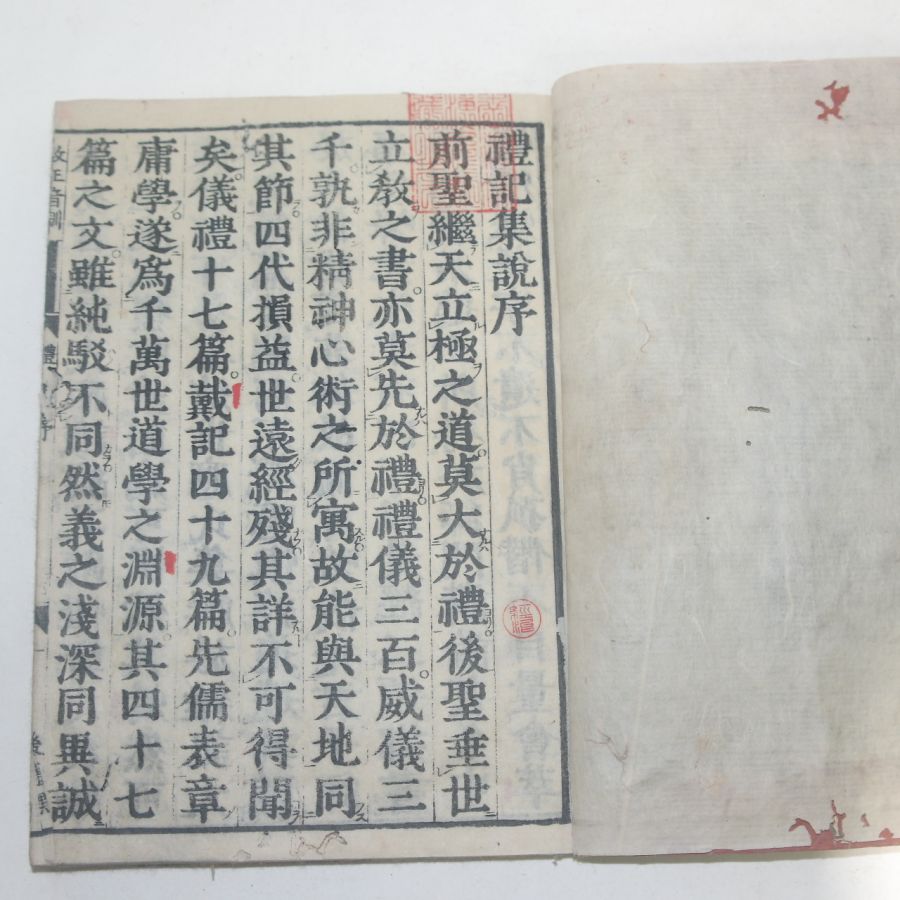 禮記集說序
前聖繼天立極之道莫大於禮後聖垂世
立教之書亦莫先於禮禮儀三百威儀三
千孰非精神心術之所寓故能與天地同
其節四代損益世遠經殘其詳不可得聞
矣儀禮十七篇戴記四十九篇先儒表章
庸學遂爲千萬世道學之淵源其四十七
篇之文雖純駁不同然義之淺深同異誠